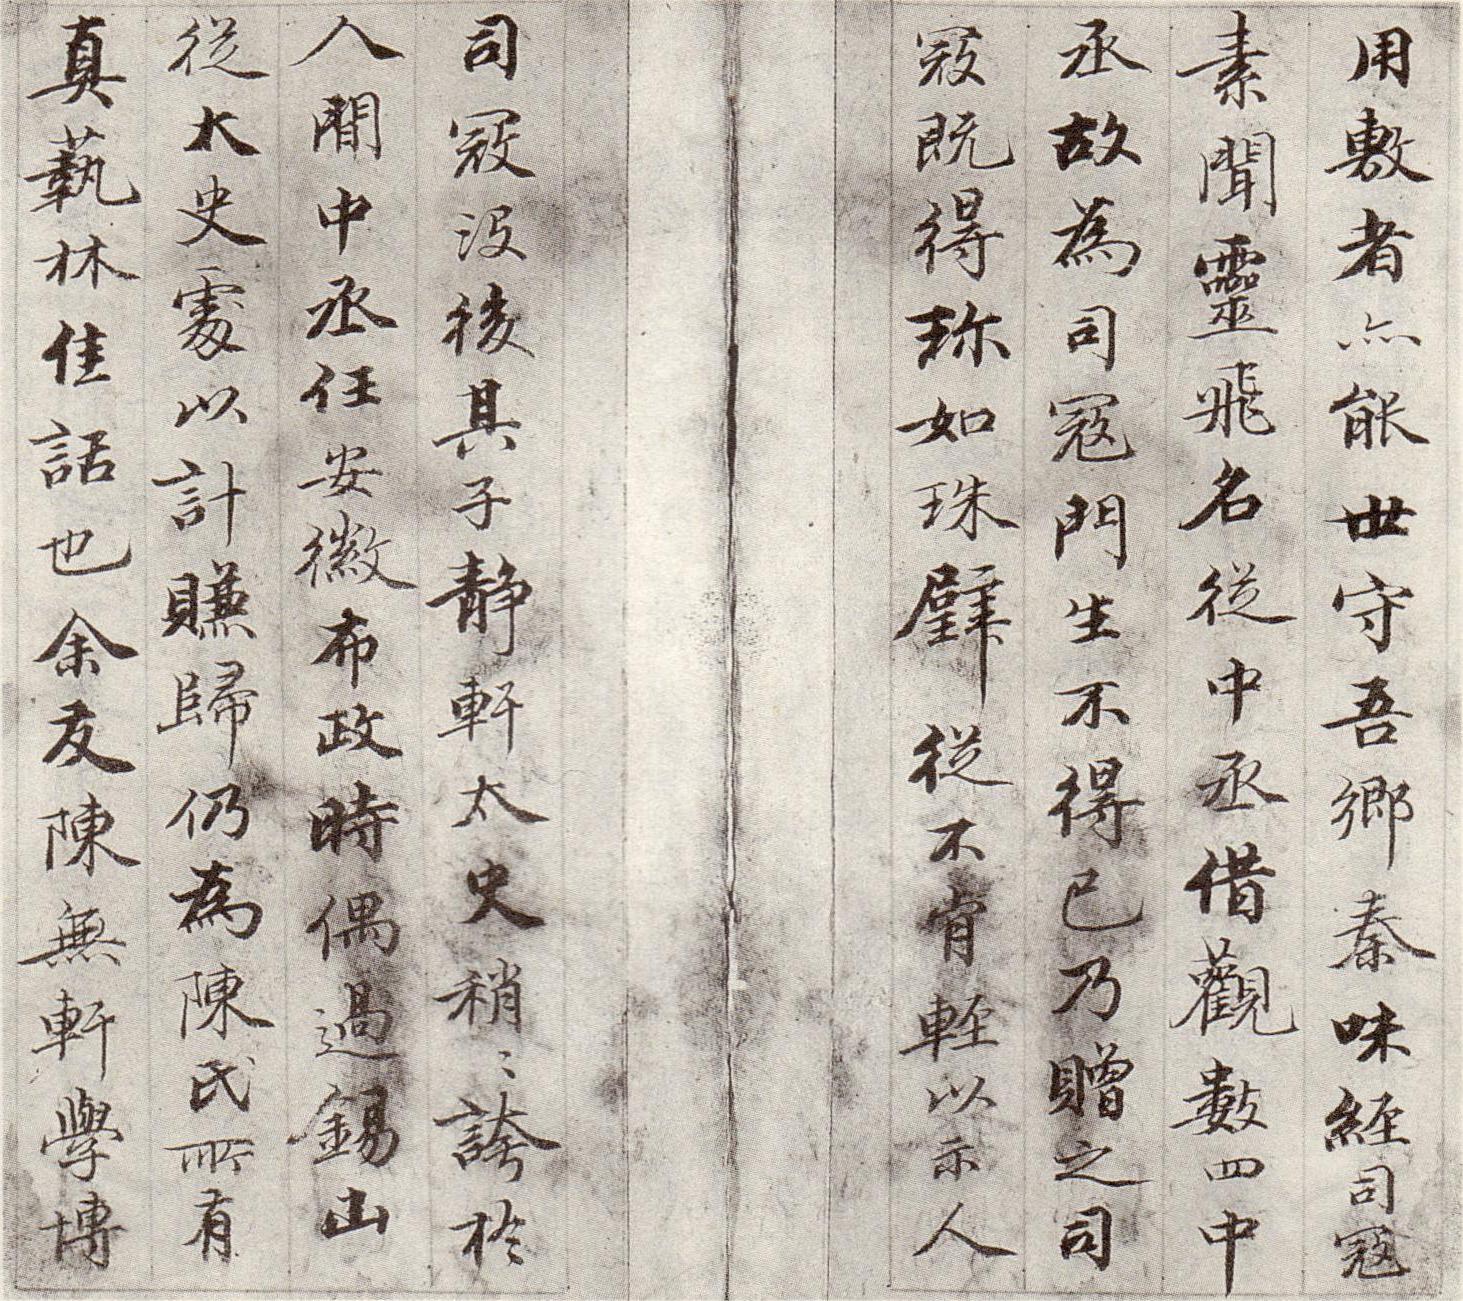 用敷者亦能世守吾鄉秦味經司寇
素聞靈飛名從中丞借觀數四中
丞故為司寇門生不得已乃贈之司
寇既得珎如珠璧從不肯輕以示人
司寇没後其子靜軒太史稍〻誇於
人間中丞任安徽布政時偶過錫山
從太史處以計賺歸仍為陳氏所有
真藝林佳話也余友陳無軒學博